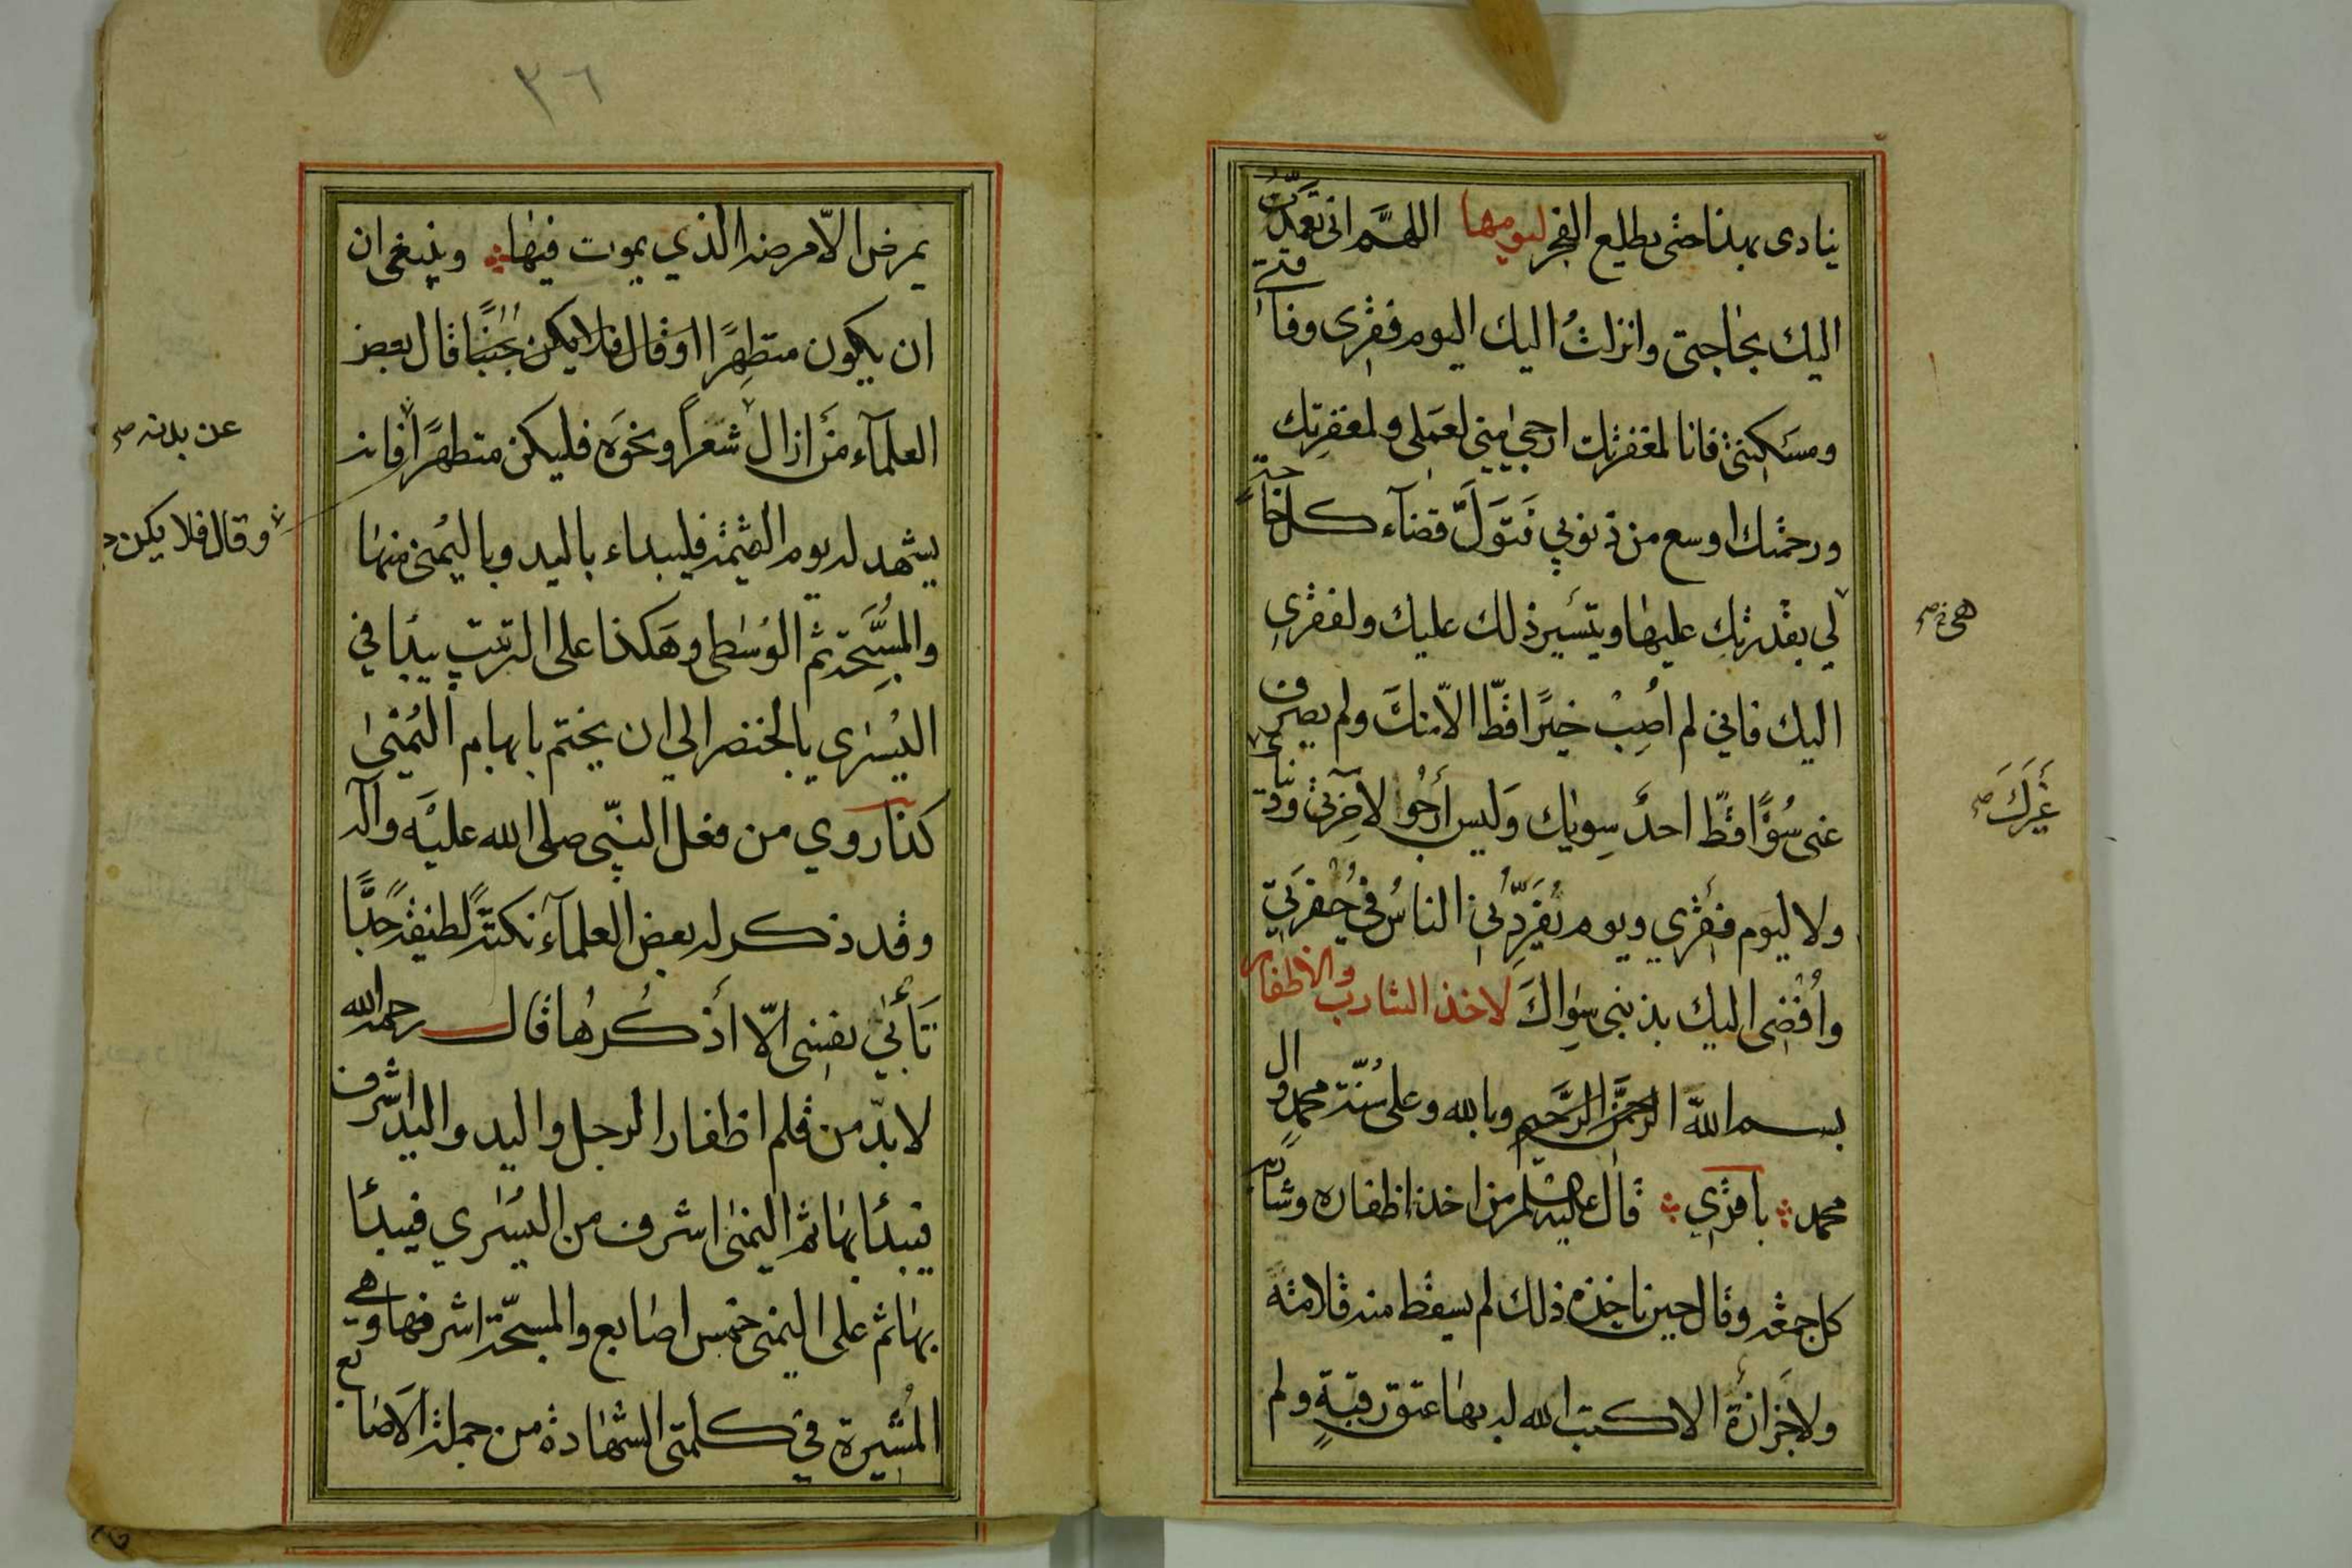 ينادى بهذا حتى يطلع الفجر ليومها اللهم انى تعمدت
اليك بحاجتى وانزلت اليك اليوم فقرى وفاقتي
ومسكنتى فانا لمغفرتك ارجى منى لعملى ولمغفرتك
ورحمتك اوسع من ذنوبي فتول قضآء كل حاجة
لي بقدرتك عليها وتيسير ذلك عليك ولفقرى
هى
اليك فاني لم اصب خيرا قط الا منك ولم يصرف
عنى سوءا قط احد سواك وليس أرجو لاخرتي ودنياي
غيرك
ولا ليوم فقري ويوم يفردني الناس في حفرتي
وأفضى اليك بذنبى سواك لاخذ الشارب والاظفار
بسم الله الرحمن الرحيم وبالله وعلى سنة محمد وال
محمد باقري قال عليه السلم من اخذ اظفاره وشاربه
كل جمعة وقال حين ياخذه ذلك لم يسقط منه قلامة
ولا جزازة الا كتب الله له بها عتق رقبة ولم
٣٦
يمرض الا مرضه الذي يموت فيها وينبغى ان
ان يكون متطهرا او قال فلا يكن جنبا قال بعض
العلمآء من ازال شعرا ونحوه فليكن متطهرا فانه
عن بدنه
وقال فلا يكن
يشهد له يوم القيمة فليبداء باليد وباليمنى منها
والمسبحة ثم الوسطى وهكذا على الترتيب يبدا في
اليسرى بالخنصر الى ان يختم بابهام اليمنى
كذا روي من فعل النبي صلى الله عليه وآله
وقد ذكر له بعض العلمآء نكتة لطيفة جدا
تأبي نفسى الا أذكرها قال رحمه الله
لا بد من قلم اظفار الرجل واليد واليد اشرف
فيبدأ بها ثم اليمنى اشرف من اليسرى فيبدأ
بها ثم على اليمنى خمس اصابع والمسبحة اشرفها وهي
المشيرة في كلمتى الشهادة من جملة الاصابع